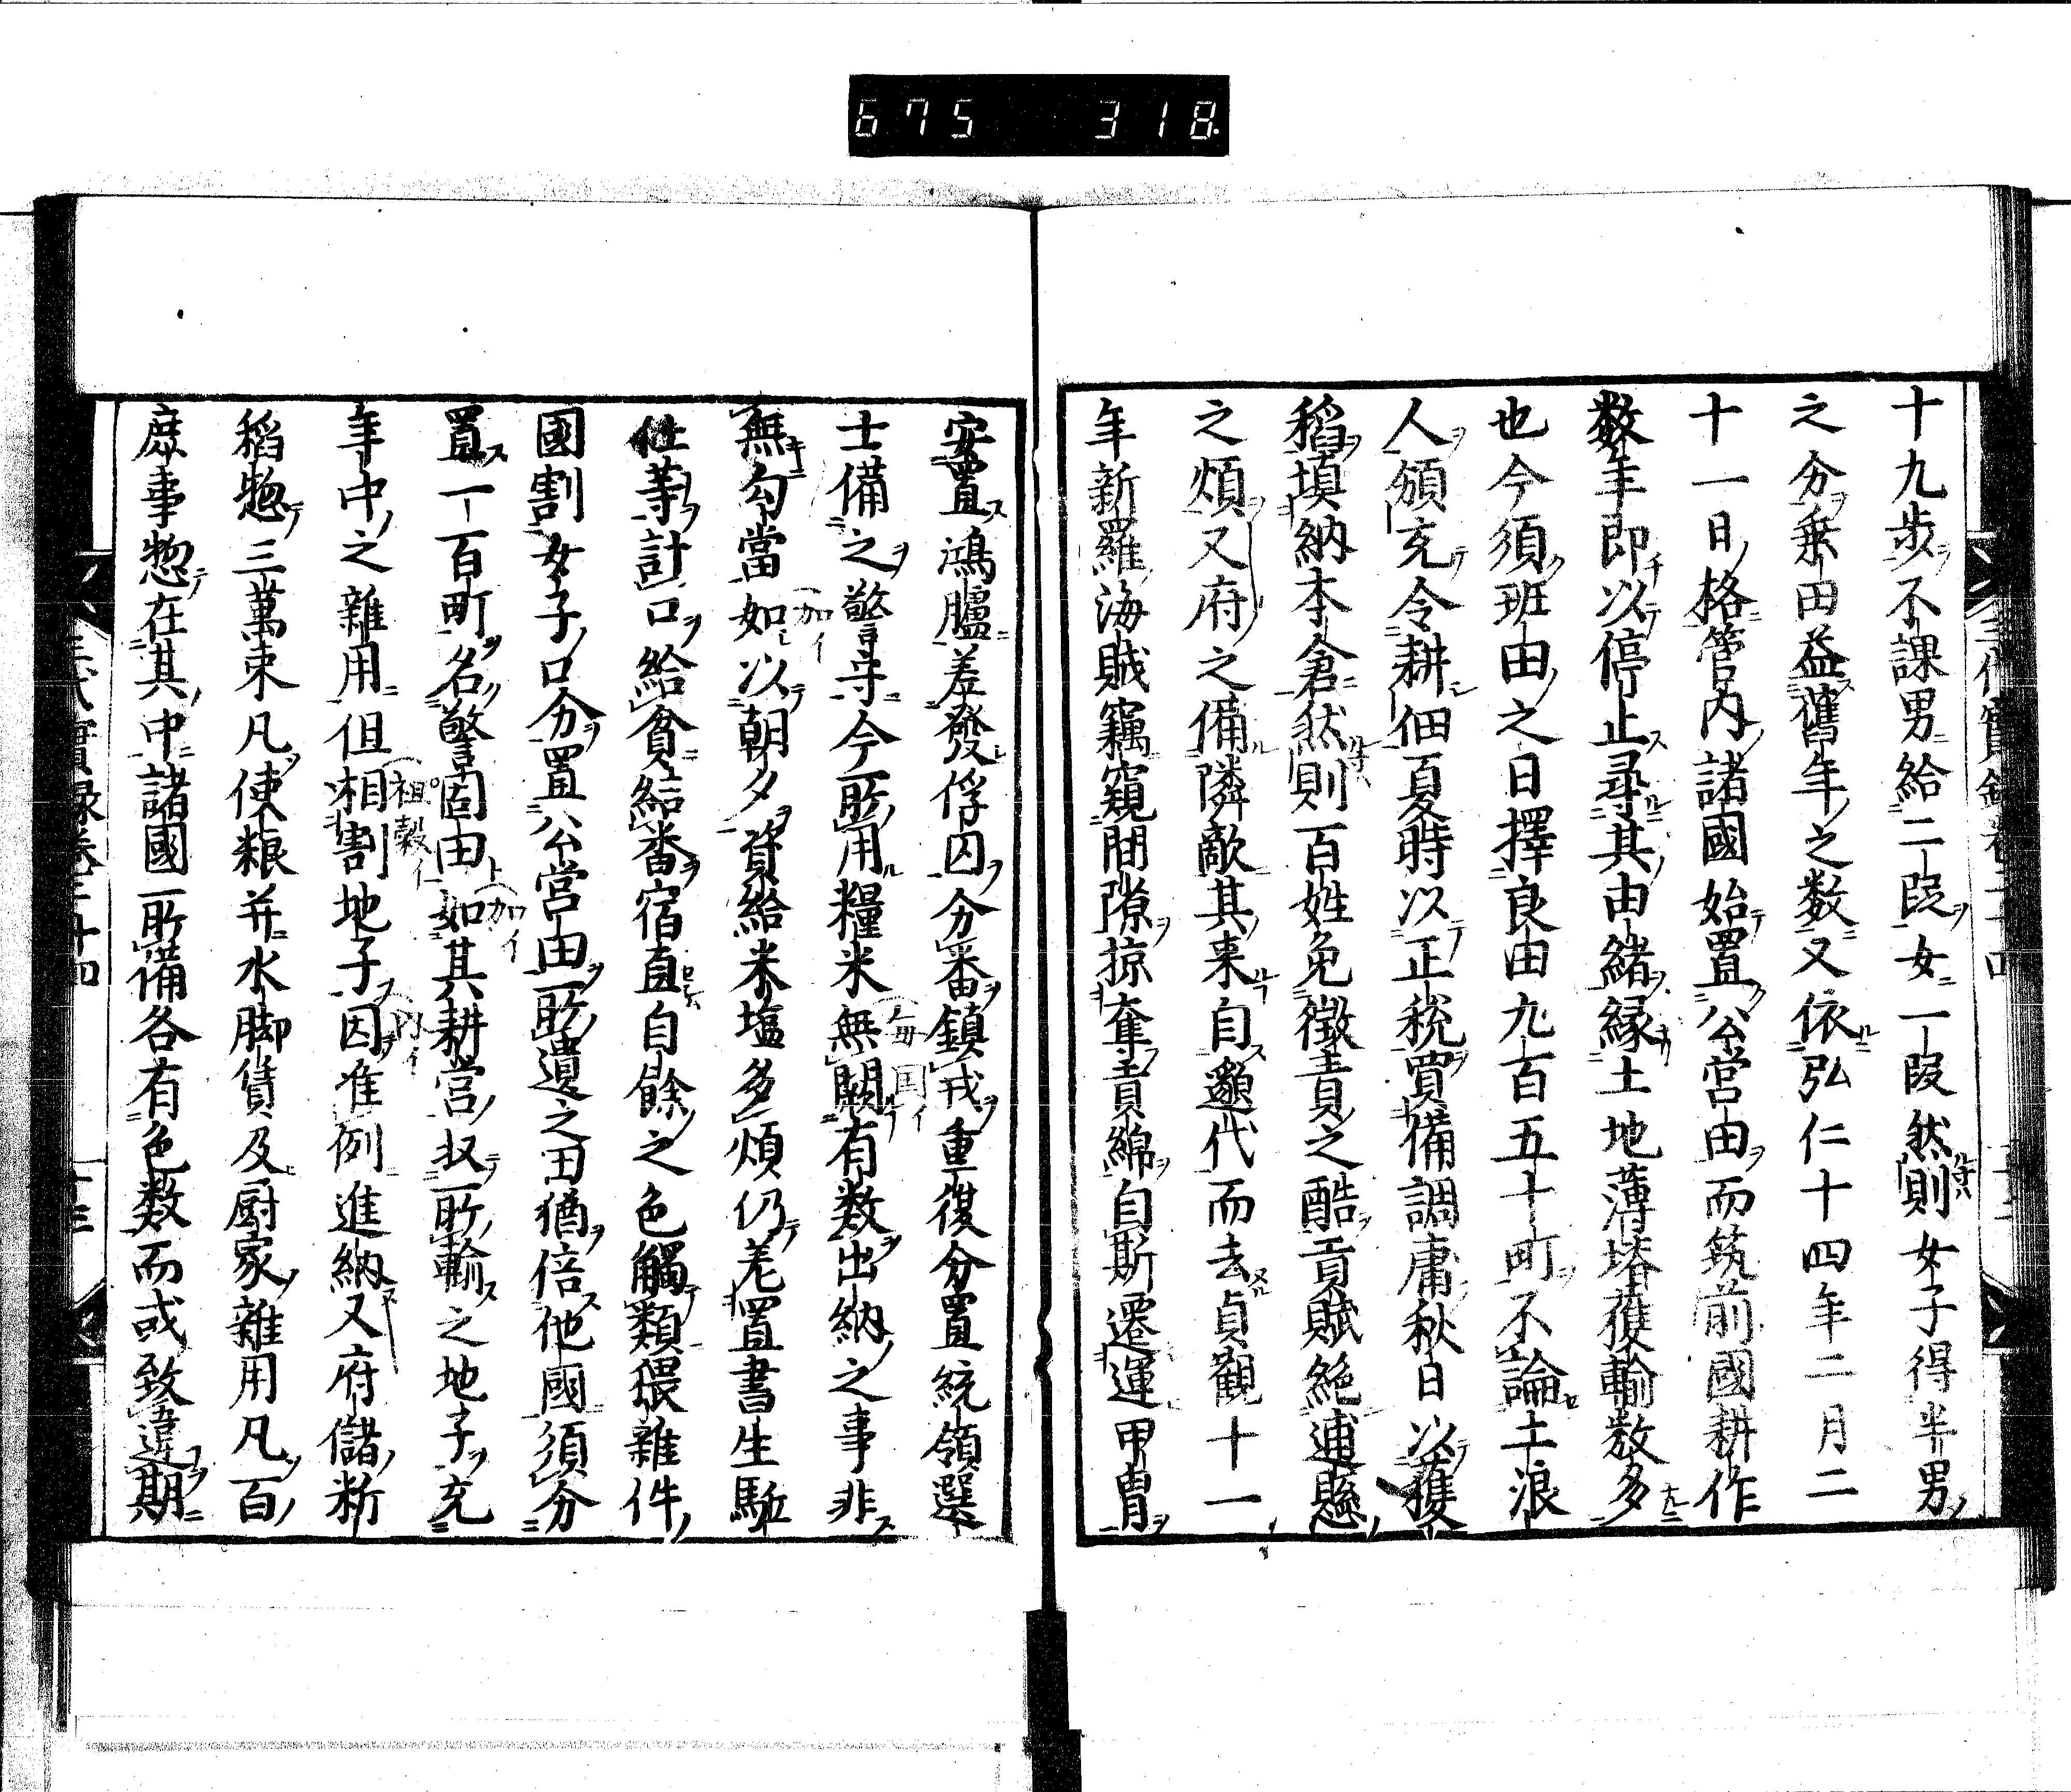 675 318
十九歩不課男給二段女一段然則女子得半男
之分乗田益舊年之数又依弘仁十四年二月二
十一日格管内諸國始置公営田而筑前國耕作
数年即以停止尋其由緒縁土地薄塉獲輸数多
也今須班田之日擇良田九百五十町不論土浪
人頒充令耕佃夏時以正税買備調庸秋日以獲
稻填納本倉然則百姓免徴責之酷貢賦絶逋懸
之煩又府之備隣敵其来自邈代而去貞觀十一
年新羅海賊竊窺間隙掠奪貢綿自斯遷運甲冑
安置鴻臚差發俘囚分番鎮戎重復分置統領選
士備之警守今所用糧米無闕有数出納之事非
無勾當如以朝夕資給米塩多煩仍差置書生駈
仕等計口給食結番宿直自餘之色觸類猥雜伴
國割女子口分置公営田所遺之田猶倍他國須分
置一百町名警固田如其耕営収所輸之地子充
年中之雜用但相割地子因准例進納又府儲料
稻惣三萬束凡使粮并水脚賃及厨家雜用凡百
庶事惣在其中諸國所備各有色数而或致違期